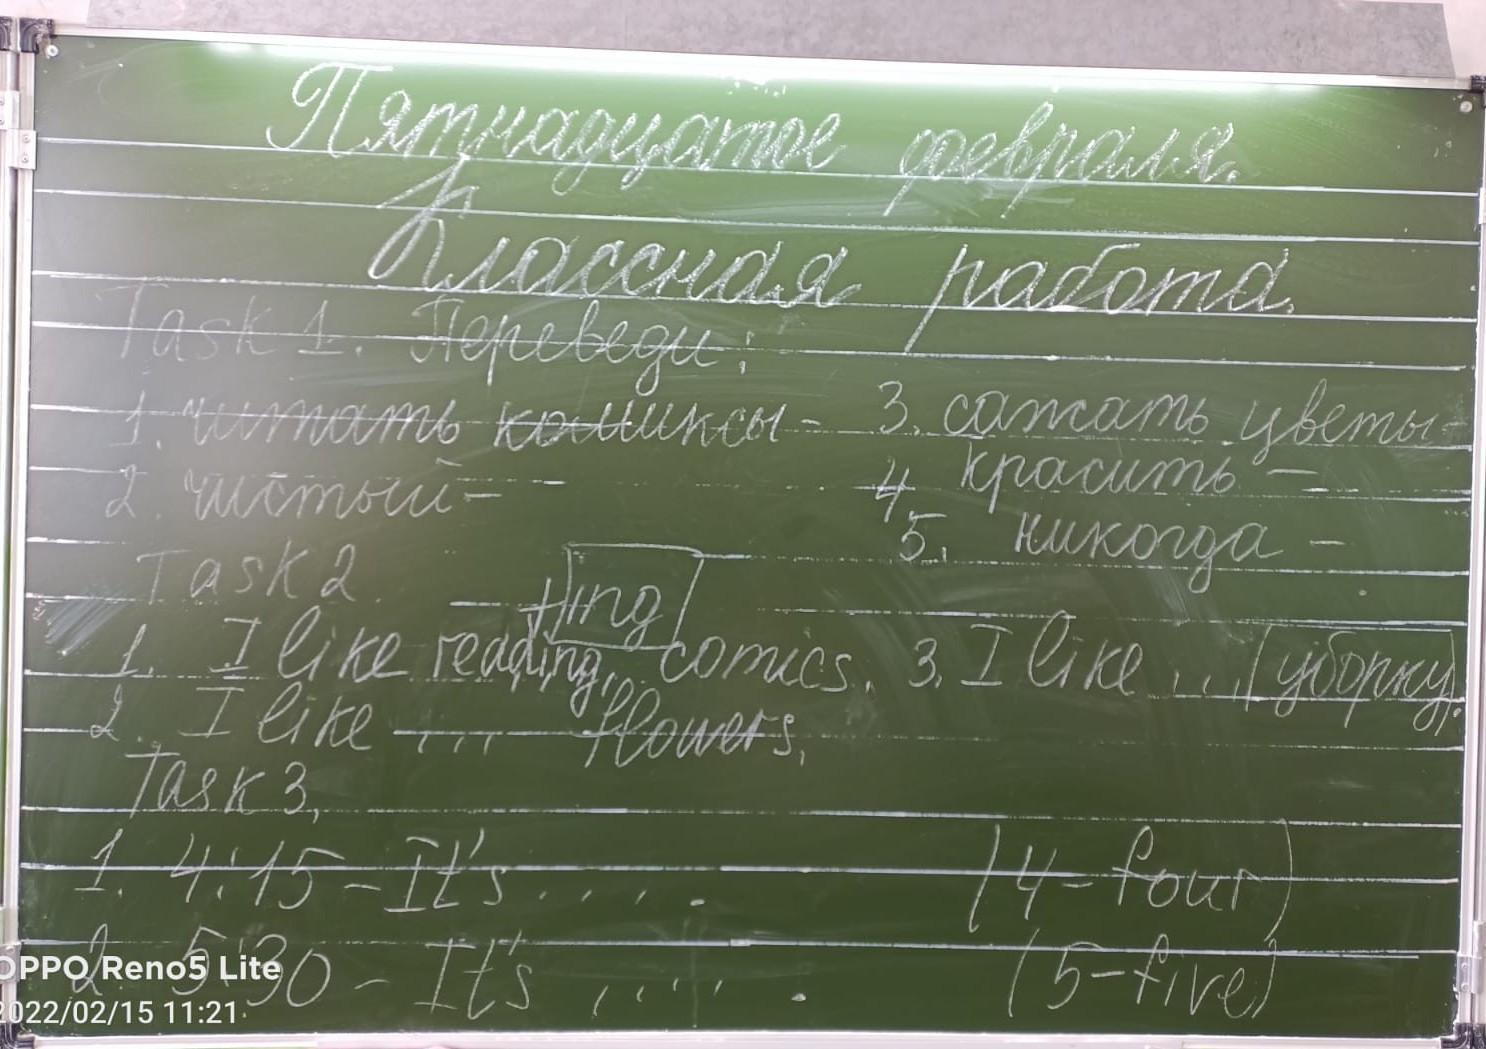 Пятнадцатое февраля.
Классная работа.
Task 1. Переведи:
1. читать комиксы -
2. чистый -
3. сажать цветы -
4. красить -
5. никогда -
Task 2.
+ing
1. I like reading comics.
2. I like ... flowers.
3. I like ... (уборку).
Task 3.
1. 4:15 - It's .... . (4 - four)
2. 5:30 - It's .... . (5 - five)
OPPO Reno5 Lite
2022/02/15 11:21